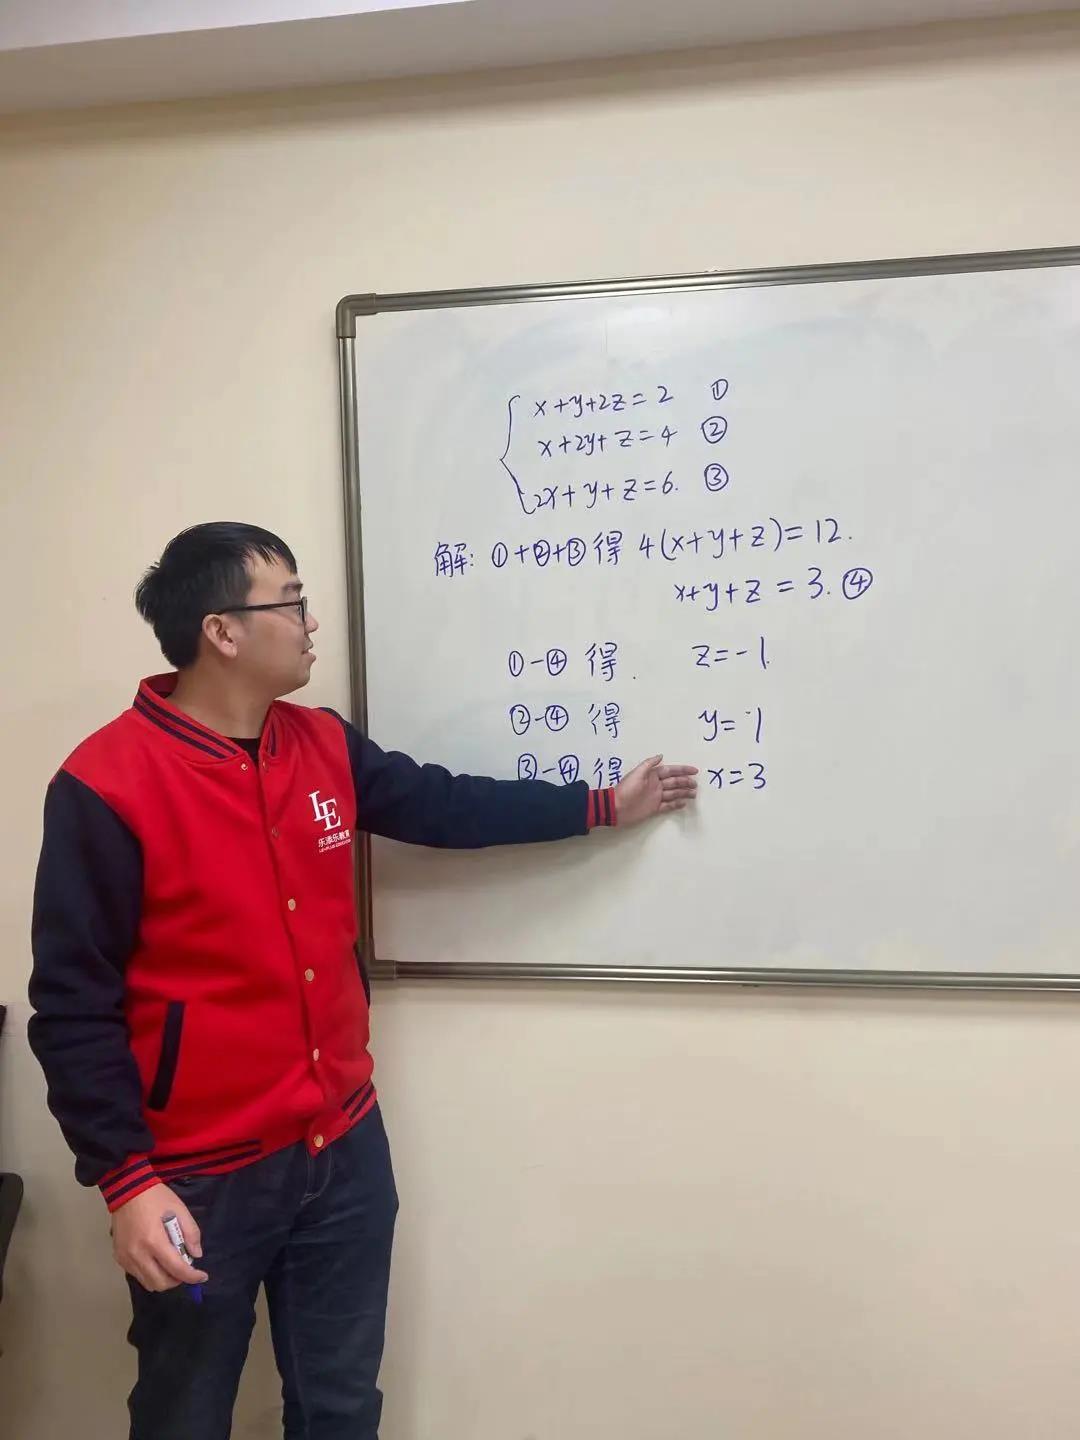 x+y+2z=2 ①
x+2y+z=4 ②
2x+y+z=6. ③
解: ①+②+③ 得 4(x+y+z)=12.
x+y+z=3. ④
①-④ 得. z=-1.
②-④ 得 y=1
③-④ 得 x=3
LE
乐添乐教育